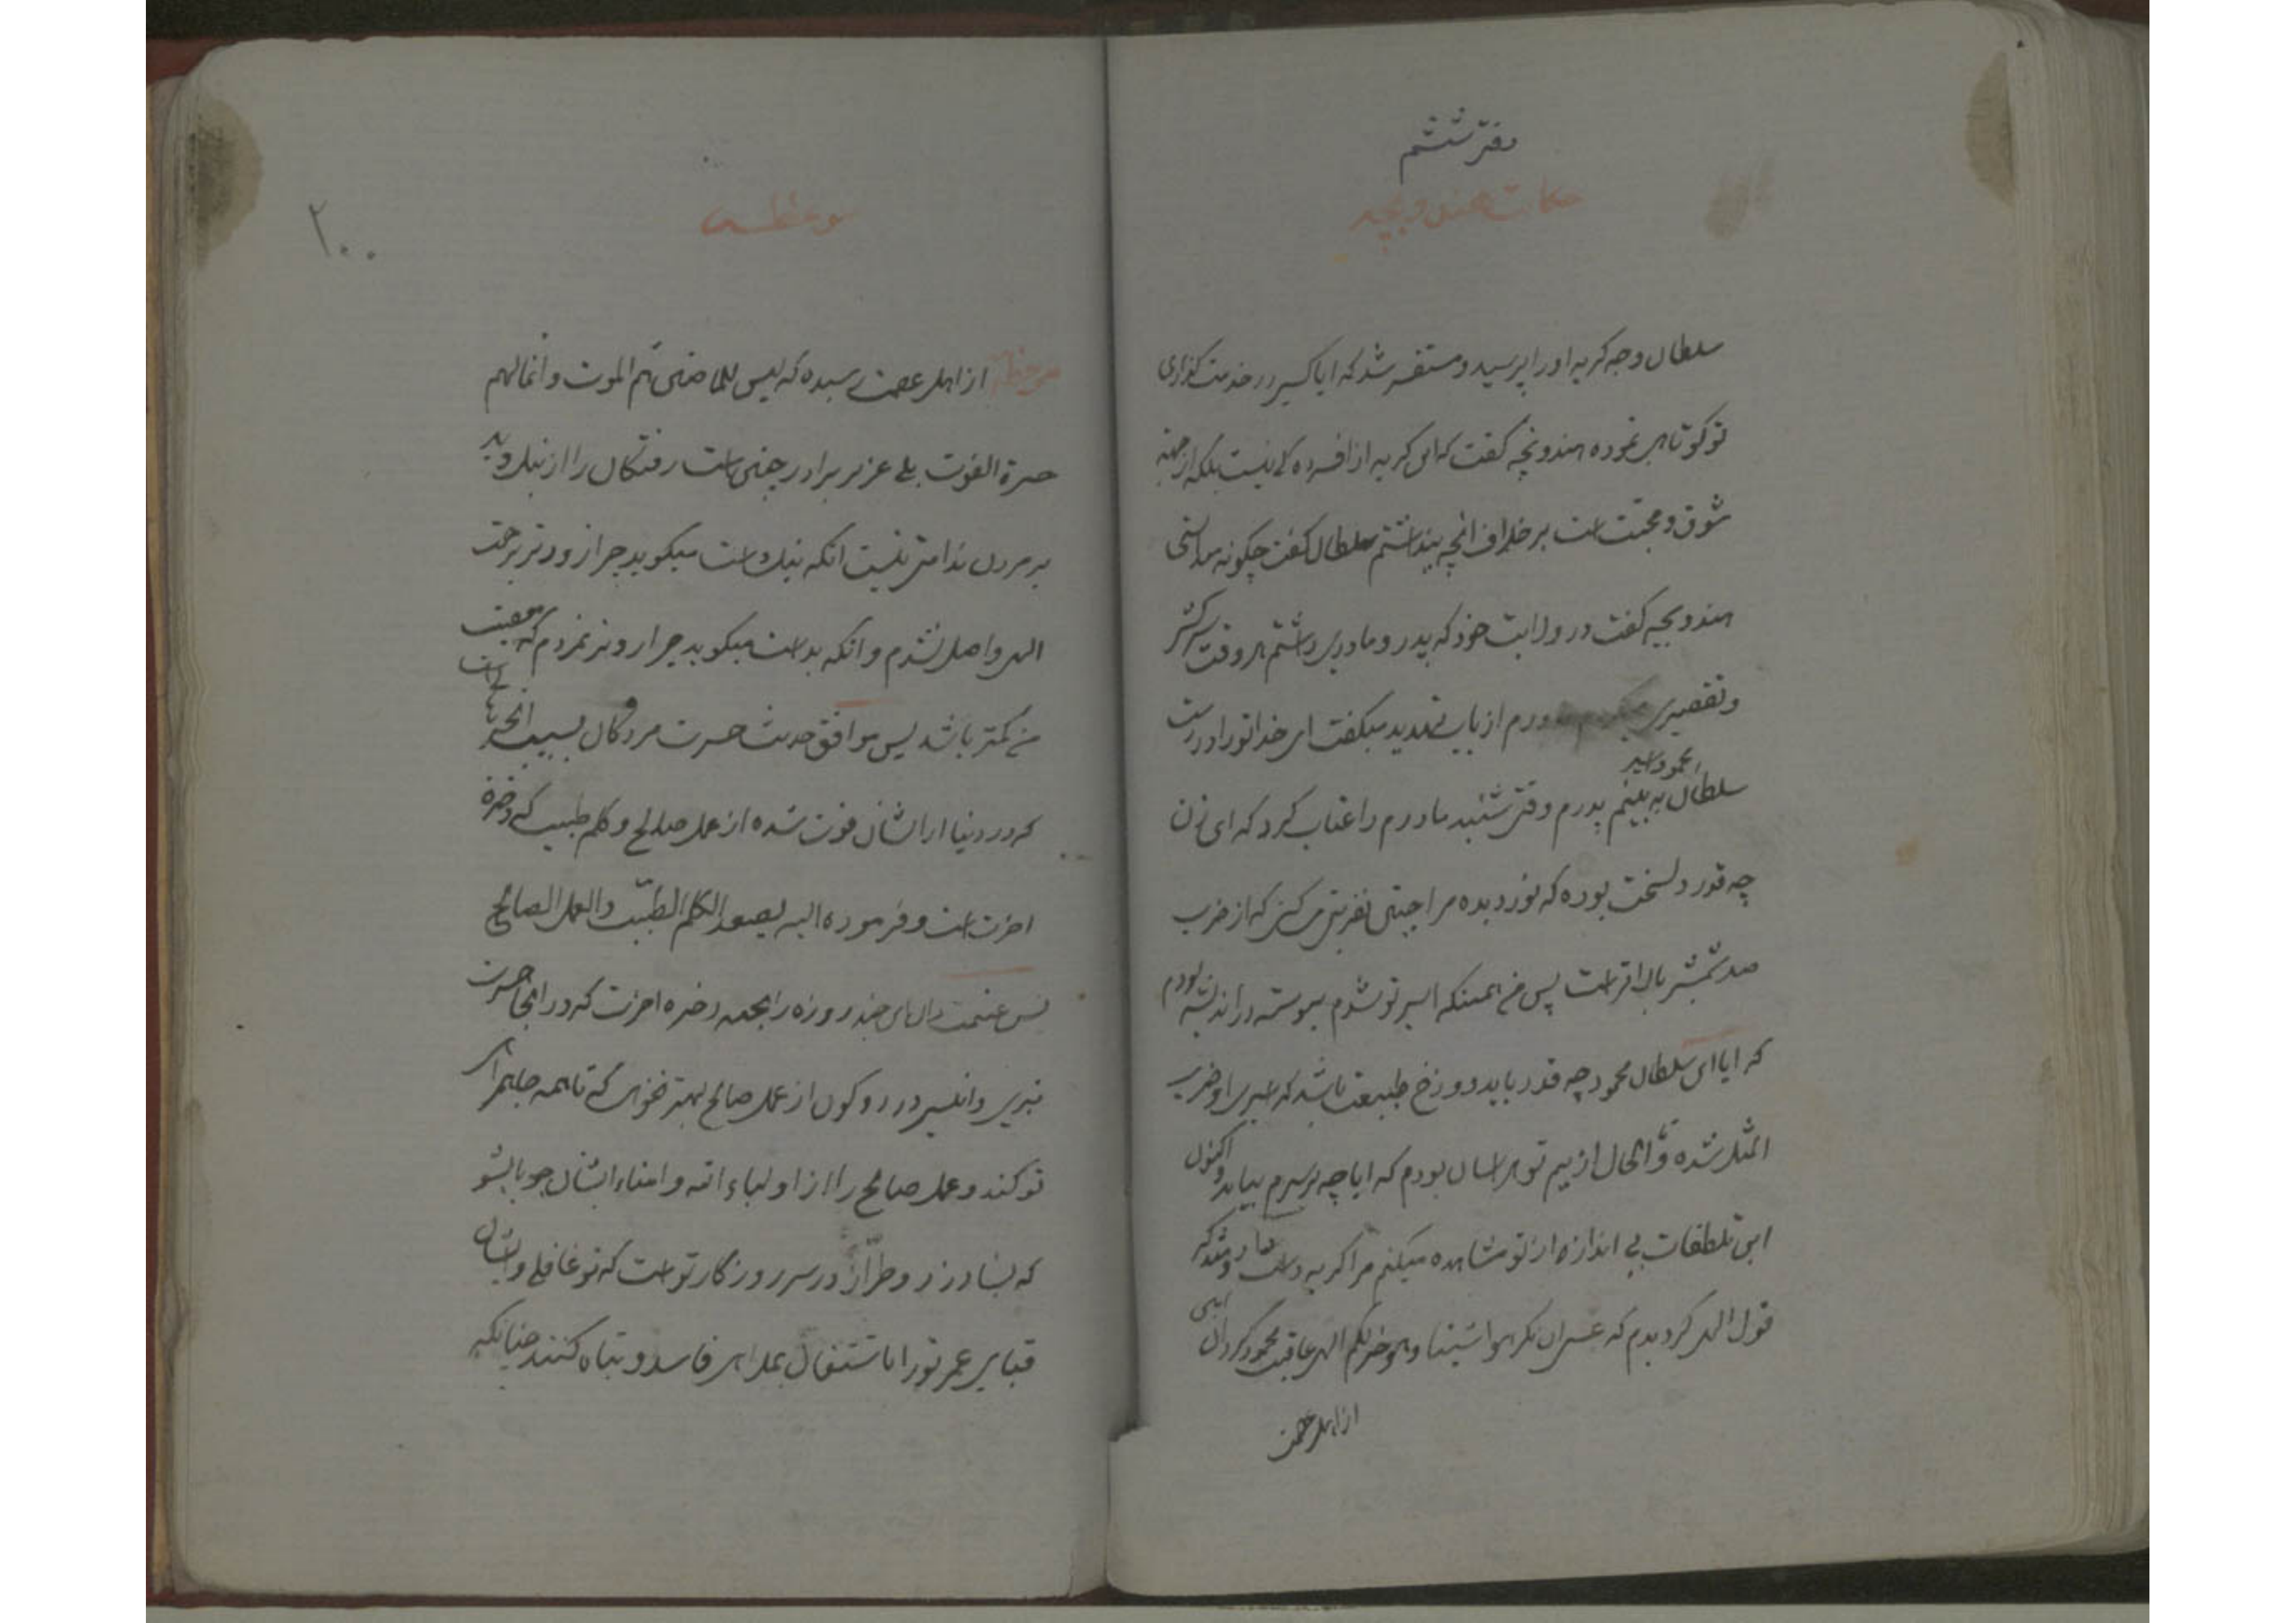 دفتر ششم
حکایت هندو بچه
سلطان وجه کریه او را پرسید و مستفسر شد که ایا کسی در خدمت کذاری
تو کوتاهی نموده هندو بچه کفت که این کریه از افسرده کی نیست بلکه از جهة
شوق و محبت است بر خلاف انچه پنداشتم سلطان کفت چکونه میدانستی
هندو بچه کفت در ولایت خود که پدر و مادری داشتم هر وقت سرکشی
و تقصیری میکردم مادرم از باب تهدید میکفت ای خدا تو را در دست
سلطان محمود اسیر به بینم پدرم وقتی شنید مادرم را عتاب کرد که ای زن
چه قدر دلسخت بوده که نور دیده مرا چنین نفرینی می کنی که از ضرب
صد شمشیر بالاتر است پس من همینکه اسیر تو شدم پیوسته در اندیشه بودم
که ایا ای سلطان محمود چه قدر باید دوزخ طبیعت باشد که اسیری او ضرب
المثل شده و تا الحال از بیم تو هراسان بودم که ایا چه بر سرم بیاید و اکنون
این تلطفات بی اندازه از تو مشاهده میکنم مرا کریه دست داد و متذکر
قول الهی کردیدم که عسی ان تکرهوا شیئا و هو خیر لکم الهی عاقبت محمود کردان امین
از اهل عصمت
موعظه
۲۰۰
موعظه از اهل عصمت رسیده که لیس للماضین هم الموت و انما لهم
حسرة الفوت بلی عزیز برادر چنین است رفتکان را از نیک و بد
بر مردن ندامتی نیست انکه نیک است میکوید چرا زودتر برحمت
الهی واصل نشدم و انکه بد است میکوید چرا زودتر نمردم که معصیت
من کمتر باشد پس موافق حدیث حسرت مردکان بسبب انچیزها است
که در دنیا از ایشان فوت شده از عمل صالح و کلم طیب که ذخیره
اخرت است و فرموده الیه یصعد الکلم الطیب و العمل الصالح
پس غنیمت دان این چند روزه را بجهة ذخیره اخرت که در انجا حسرت
نبری و انیسی در دو کون از عمل صالح بهتر نخواهی که تا همه جا همراهی
تو کند و عمل صالح را از اولیاء الله و امناء ایشان جویا بشو
که بسا دزد و طرار در سر روزکار تو است که تو غافلی و ایشان
قبای عمر تو را با اشتغال بعملهای فاسد و تباه کنند چنانکه